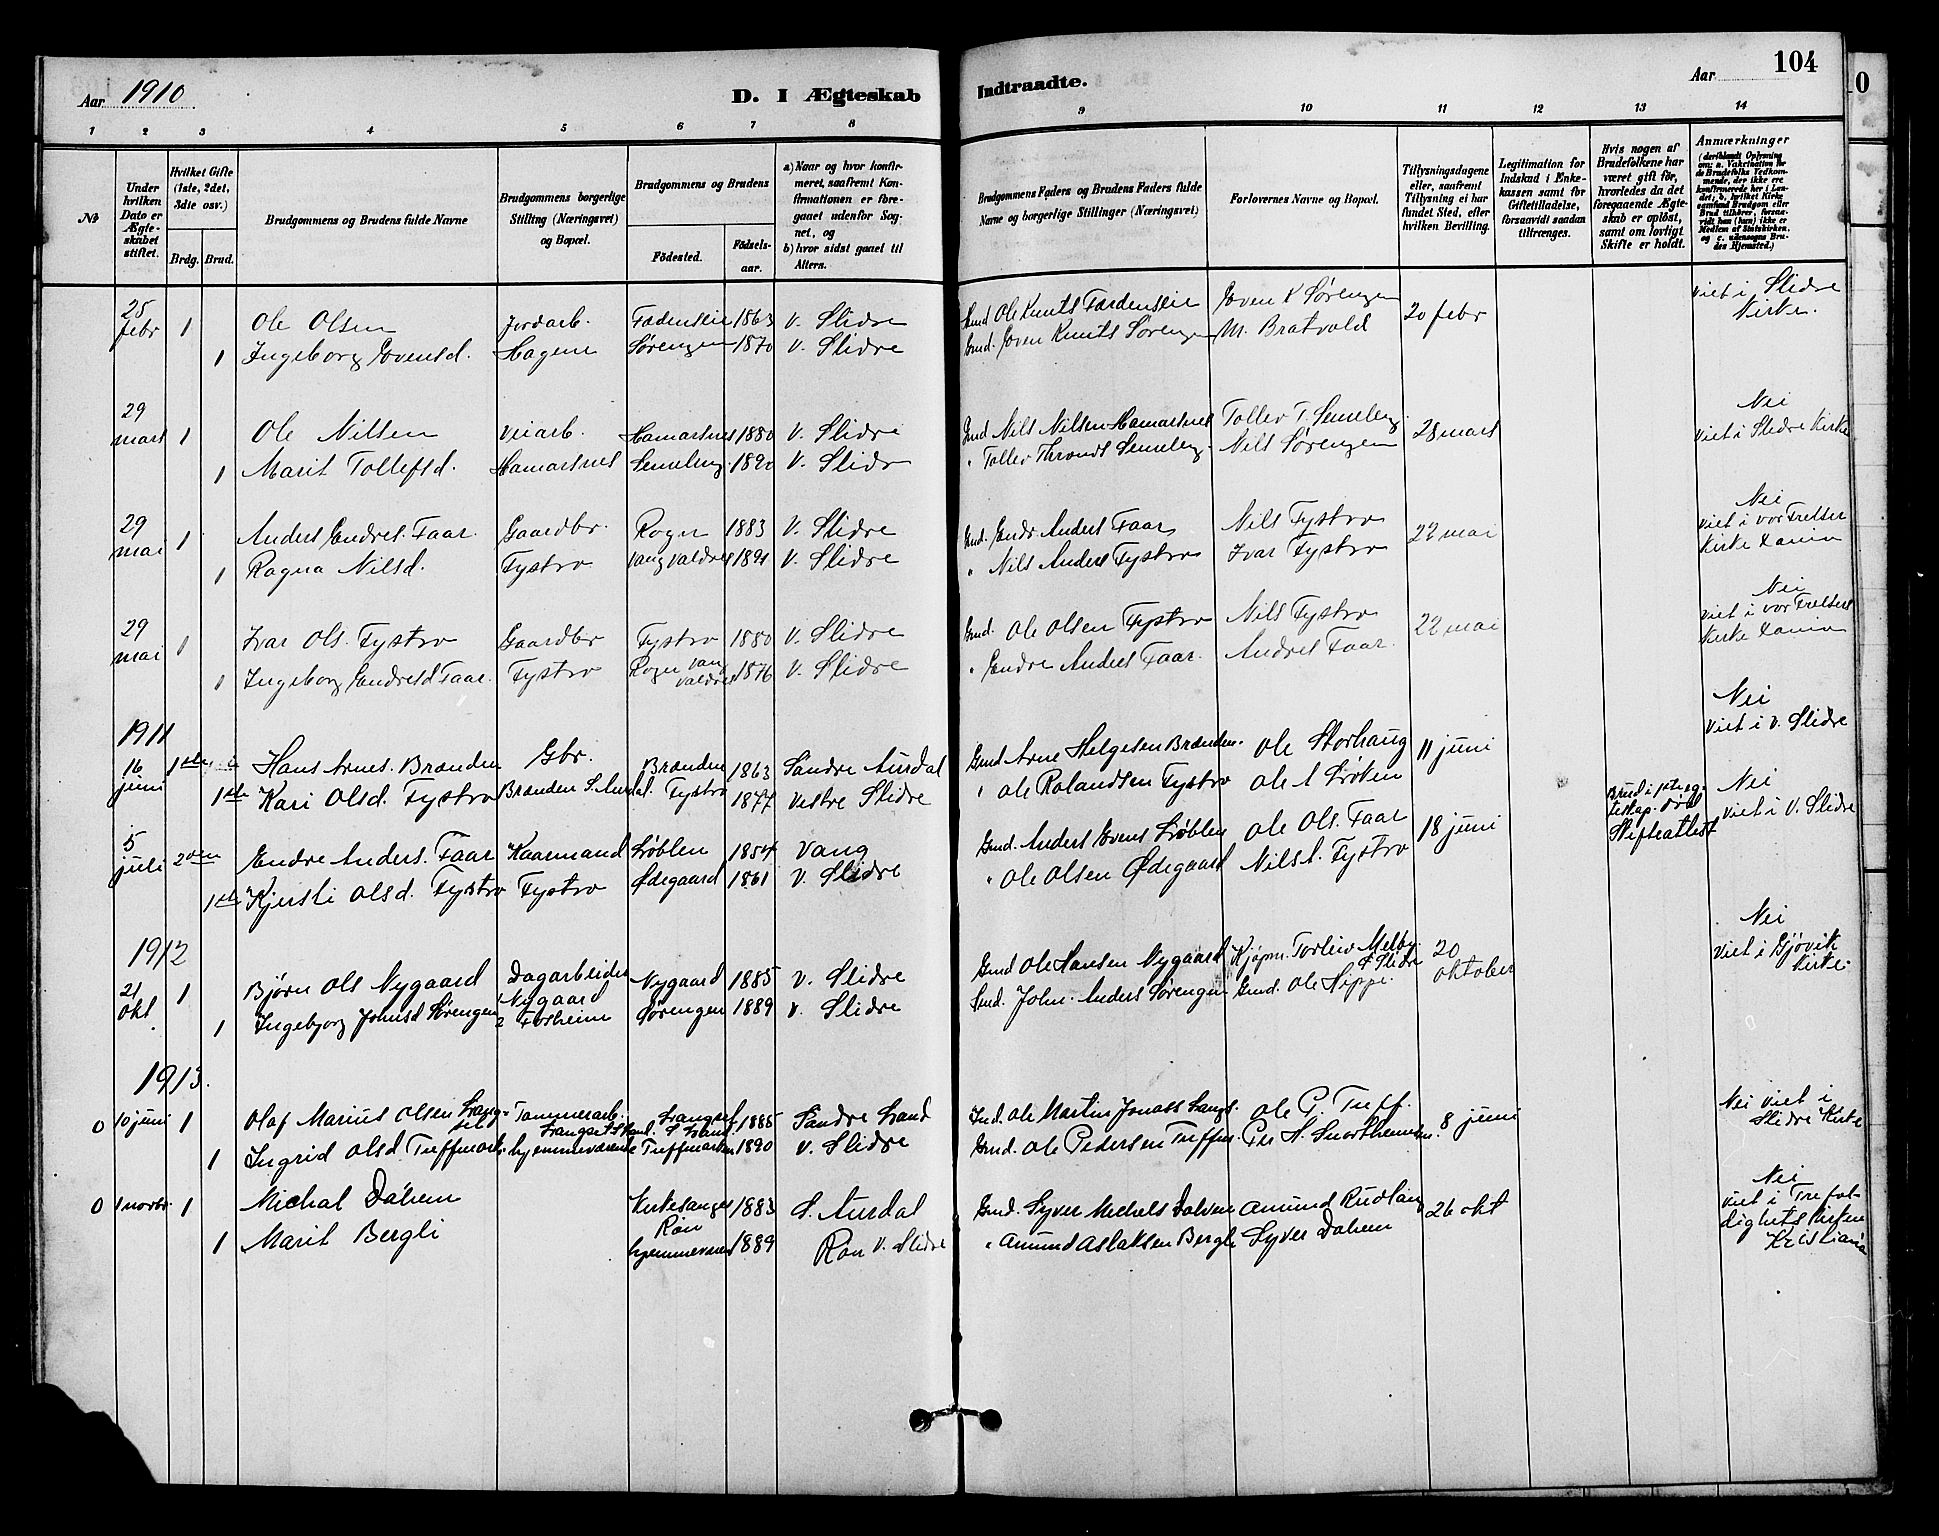 Aar 1910
D. I Ægteskab Indtraadte.
Aar 104
1 2 3 4 5 6 7 8 9 10 11 12 13 14
No
Under hvilken Dato er Ægteskabet stiftet.
Hvilket Gifte (1ste, 2det, 3die osv.)
Brdg. Brud.
Brudgommens og Brudens fulde Navne
Brudgommens borgerlige Stilling (Næringsvei) og Bopæl.
Brudgommens og Brudens
Födested. Födselsaar.
a) Naar og hvor konfirmeret, saafremt Konfirmationen er foregaaet udenfor Sognet, og
b) hvor sidst gaaet til Alters.
Brudgommens Faders og Brudens Faders fulde Navne og borgerlige Stillinger (Næringsvei)
Forlovernes Navne og Bopæl.
Tillysningsdagene eller, saafremt Tillysning ei har fundet Sted, efter hvilken Bevilling.
Legitimation for Indskud i Enkekassen samt for Giftetilladelse, forsaavidt saadan tiltrænges.
Hvis nogen af Brudefolkene har været gift för, hvorledes da det foregaaende Ægteskab er oplöst, samt om lovligt Skifte er holdt.
Anmærkninger
25 febr 1 Ole Olsen Jordarb. 1863 V. Slidre Ole Knuts Even K Sørengen 20 febr Viet i Slidre Kirke.
1 Ingeborg Evensd. Hagene Sørengen 1870 V. Slidre Gmd. Even Knuts Sørengen M. Bratvold
29 mars 1 Ole Nilsen Veiarb. Hamarsnes 1880 V. Slidre Gmd Nils Nilsen Hamarsnes Tollev T. Semeleng 28 mars Nei Viet i Slidre Kirke
1 Marit Tollefsd. Hamarsnes Semeleng 1890 V. Slidr " Tollev Thronds Semeleng Nils Sørengen
29 mai 1 Anders Endres. Faar Gaardbr. Rogn 1883 V. Slidre Gmd. Endr Anders Faar Nils Fystro 22 mai Nei Viet i vor Frelser Kirke
1 Ragna Nilsd. Fystro Vang Valdres 1891 V. Slidre " Nils Anders Fystro Ivar Fystro
29 mai 1 Ivar Ols. Fystro Gaardbr Fystro 1880 V. Slidre Gmd. Ole Olsen Fystro Nils Fystro 22 mai Nei Viet i vor Frelsers Kirke
1 Ingeborg Endresd Faar. Fystro Rogn Vang Valdres 1876 V. Slidre " Endre Anders Faar. Andres Faar.
1911
16 juni 1ste Hans Arnes. Brænden Gbr. Brænden 1863 Søndre Aurdal Gmd Arne Helgesen Brænden. Ole Storhaug 11 juni Nei Viet i V. Slidre
1ste Kari Olsd. Fystro Brænden S. Aurdal. Fystro 1877 Vestre Slidre " Ole Rolandsen Fystro Ole A
5 juli 2den Endre Anders. Faar Kaarmand Løblen 1854 Vang Gmd. Anders Evens Løblen Ole Ols. Faar 18 juni Skifteattest Nei Viet i V. Slidre
1ste Kjersti Olsd. Fystro Fystro Ødegaard 1861 V. Slidre " Ole Olsen Ødegaard Nils A. Fystro
1912
21 okt 1 Bjørn Ols Nygaard Dagarbeider Nygaard Nygaard 1885 V. Slidre Gmd Ole Hansen Nygaard Kjøpm. Torleiv Melby Slidre 20 oktober Nei Viet i Gjøvik Kirke.
1 Ingebjorg Johnsd Sørengen Forheim Sørengen 1889 V. Slidre John. Anders Sørengen Gmd. Ole Hippe.
1913.
0 10 juni 1 Olaf Marius Olsen Langset Tømmerarb. Langset 1885 Søndre Land Ole Martin Jonass Langs. Ole P. Treff. 8 juni Nei Viet i Slidre Kirke
1 Ingrid Olsd Treffmark hjemmeværende Treffmarken 1890 V. Slidre Gmd. Ole Pedersen Treffm. Per H.
0 1 novbr 1 Michal Dålvem Kirkesanger 1883 S. Aurdal Gmd. Syver Michels Dalven Amund Rudlang 26 okt Nei Viet i Trefoldigheds Kirken Kristiania
1 Marit Bergli Røn hjemmevær 1889 Røn V. Slidre " Amund Aslaksen Bergli Syver Dalvem